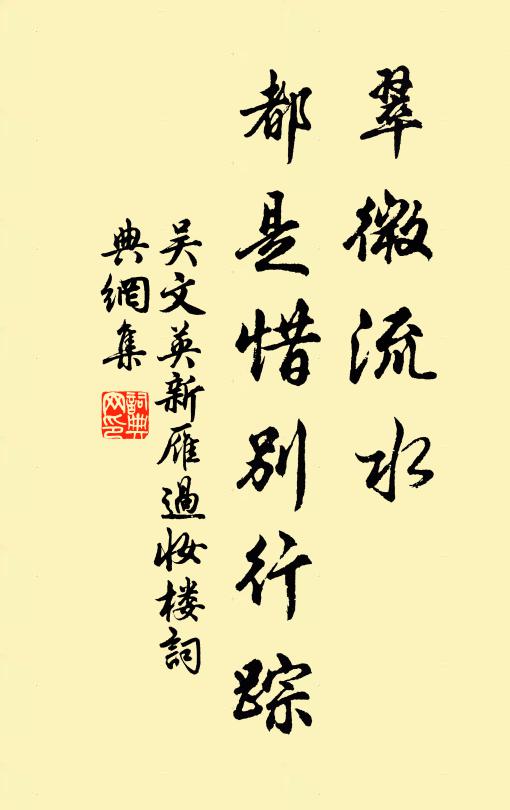 翠微流水
都是惜别行踪
吴文英新雁過妆楼詞
典網集
詞典网印